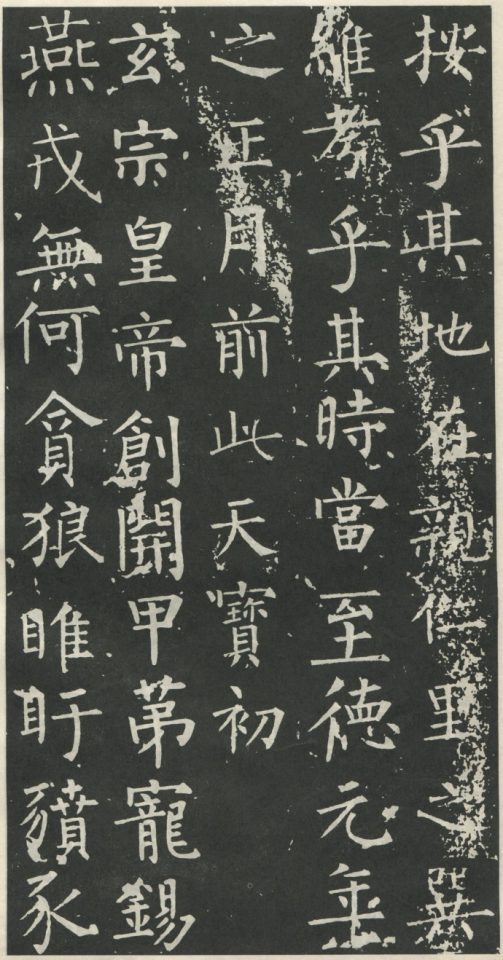 按乎其地在親仁里之巽
維考乎其時當至德元年
之正月前此天寶初
玄宗皇帝創開甲苐寵錫
燕戎無何貪狼睢盱豶豕